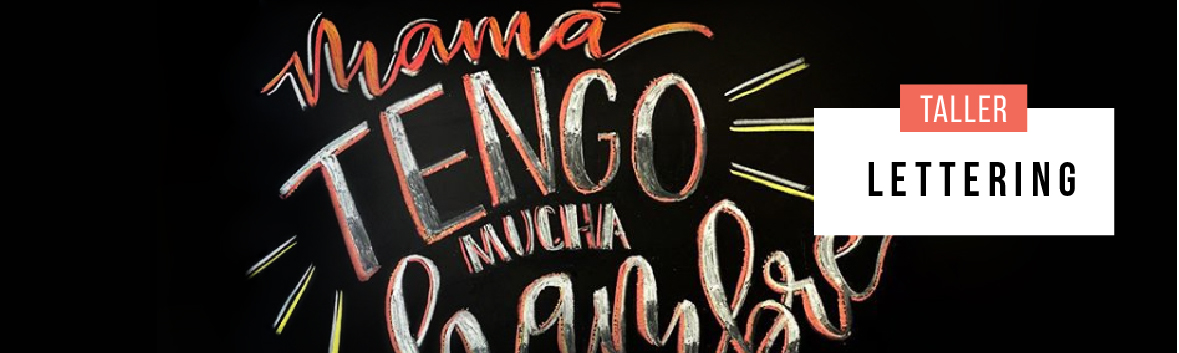 mamá
TENGO
MUCHA
hambre
TALLER
LETTERING